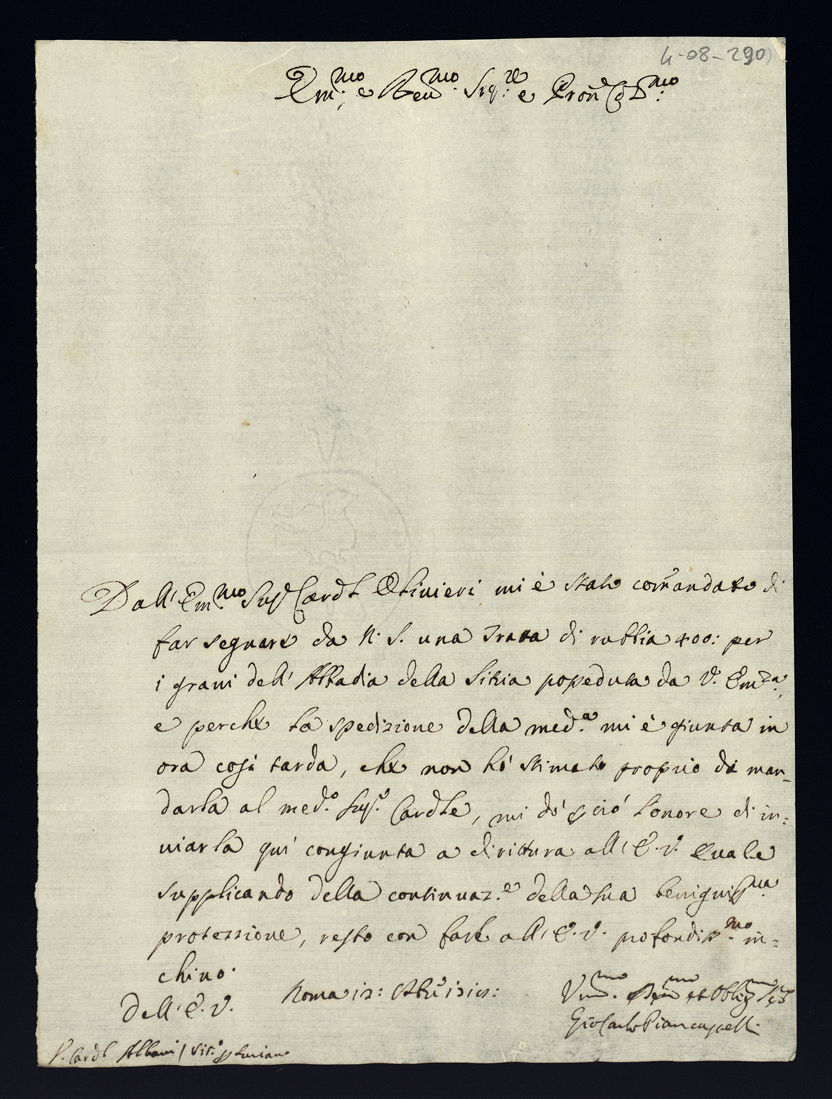 4-08-290
Em.mo e Rev.mo Sig.re e Pron Col.mo
Dall' Em.mo Sig.r Card.l Olivieri mi è stato com̄andato di
far segnare da N. S. una Trata di rubbia 400: per
i grani dell' Abbadia della Sitria posseduta da V. Em.za,
e perche la spedizione della med.a mi è giunta in
ora così tarda, che non hò stimato proprio di man-
darla al med.o Sig.r Cardle, mi dò p ciò l'onore di in-
viarla quì congiunta a dirittura all' E. V. Quale
supplicando della continuaz.e della sua benigniss.ma
protezzione, resto con farle all' E. V. profondiss.mo in-
chino.
Dell' E. V. Roma 12:
Um.mo Dev.mo et Oblig.mo
Gio Carlo
S. Card.l Albani